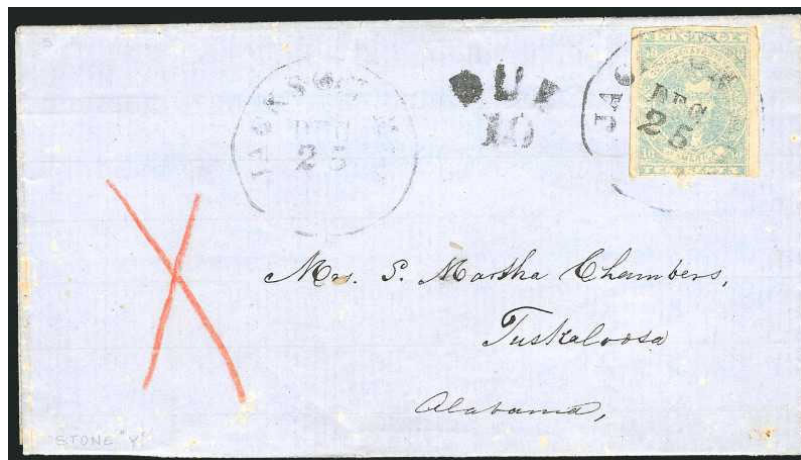 JACKSON
DEC
25
DUE
10
JACKSON
DEC
25
TEN CENTS
Mrs. S. Martha Chambers,
Tuskaloosa
Alabama,
STONE "Y"